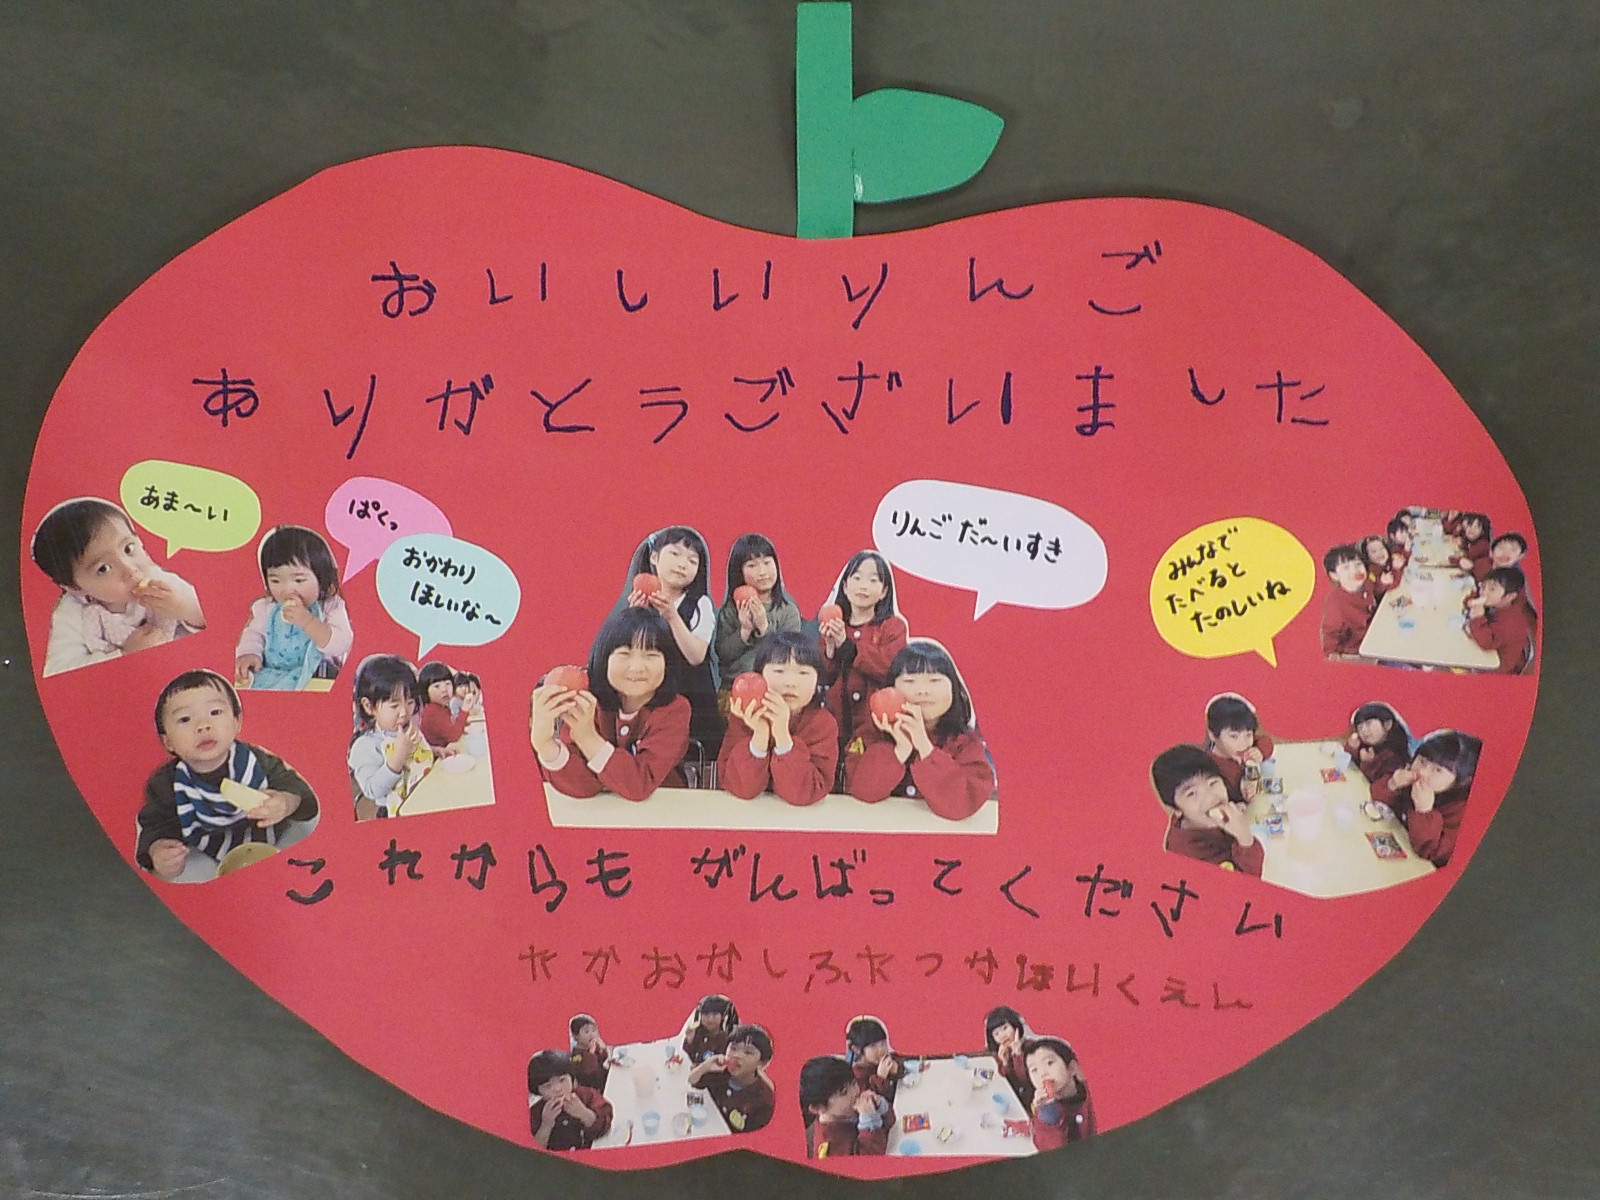 おいしいりんご
ありがとうございました
あま〜い
ぱくっ
おかわり
ほしいな〜
りんごだ〜いすき
みんなで
たべると
たのしいね
これからもがんばってください
たかおかしふたつかほいくえん